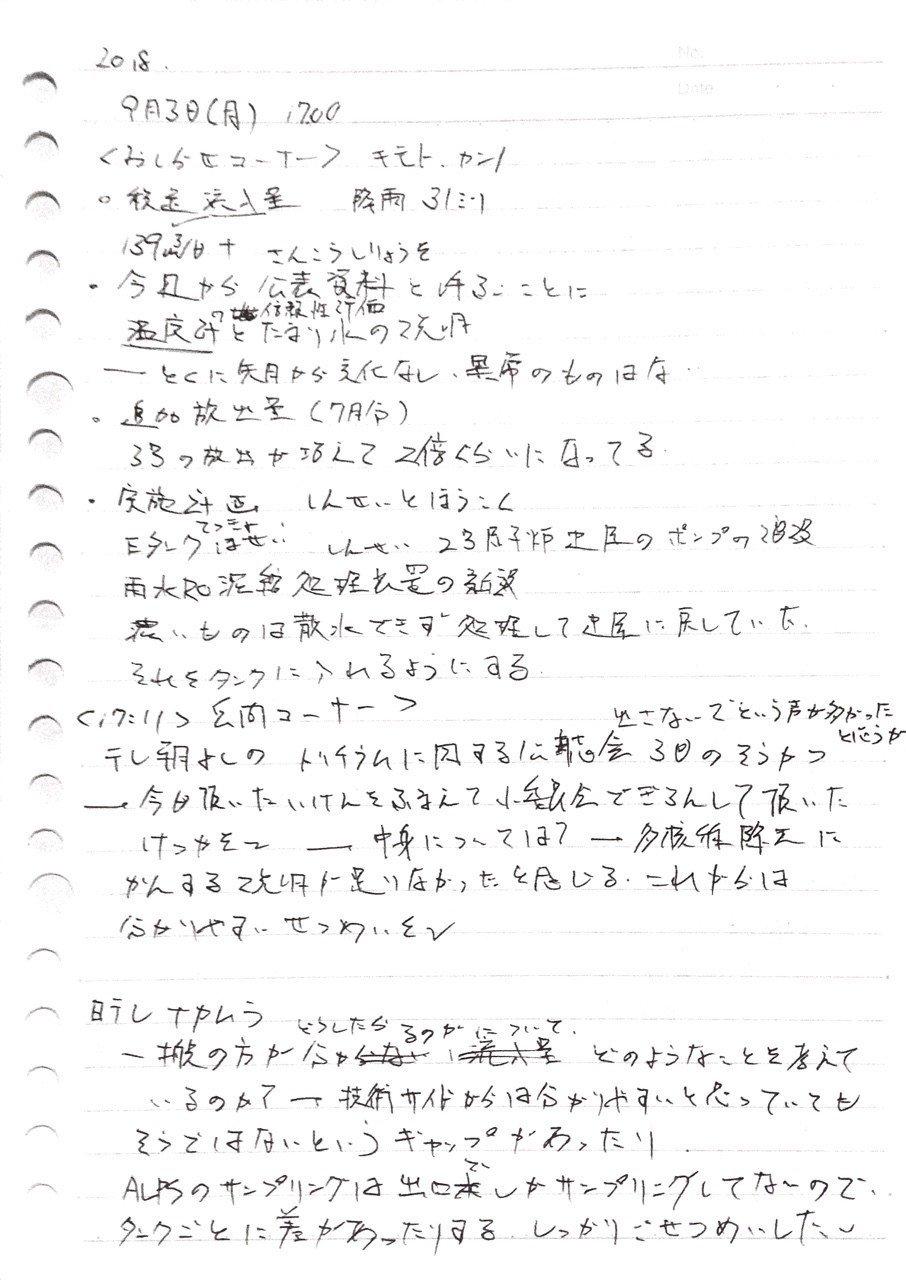 2018.
9月3日(月) 17:00
<おしらせコーナー> キモト、カン
○ 流入量 降雨 31ミリ
139㎥/日 + さんこうしりょうを
・今日から公表資料とすることに
の信頼性評価
温度計とたまり水の説明
― とくに先月から変化なし、異常のものはな
・追加放出量(7月分)
3号の放出が増えて2倍くらいになってる
・実施計画 しんせいとほうこく
Eタンクはいせい しんせい 2号原子炉建屋のポンプの
雨水RO濃縮処理装置の新設
濃いものは散水できず処理して建屋に戻していた。
それをタンクに入れるようにする
<17:11> 質問コーナー>
出さないでという声が多かった
と思うが
テレ朝よしの トリチウムに関する公聴会 3日のそうかつ
→ 今日頂いたいけんをふまえて小委員会でぎろんして頂いた
けっかをで ― 中身については? → 多核種除去に
かんする説明が足りなかったと感じる。これからは
分かりやすいせつめいをし
日テレ ナカムラ
どうしたら るのかについて、
― 一般の方が分からない 流入量 どのようなことを考えて
いるのか? → 技術サイドからは分かりやすいと思っていても
そうではないというギャップがあったり
ALPSのサンプリングは出口でしかサンプリングしてないので、
タンクごとに差があったりする しっかりごせつめいしたい